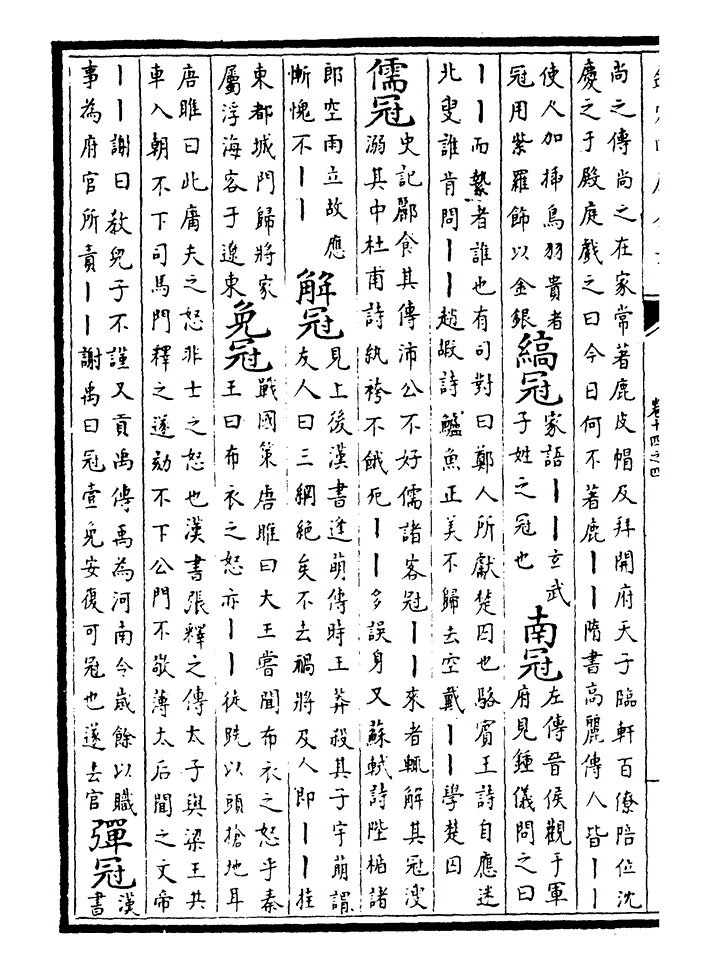 卷十四之四
尚之傳尚之在家常著鹿皮帽及拜開府天子臨軒百僚陪位沈
慶之于殿庭戲之曰今日何不著鹿丨丨隋書高麗傳人皆丨丨
使人加揷鳥羽貴者
冠用紫羅飾以金銀
縞冠
家語丨丨玄武
子姓之冠也
南冠
左傳晉侯觀于軍
府見鍾儀問之曰
丨丨而縶者誰也有司對曰鄭人所獻楚囚也駱賓王詩自應迷
北叟誰肯問丨丨趙嘏詩鱸魚正美不歸去空戴丨丨學楚囚
儒冠
史記酈食其傳沛公不好儒諸客冠丨丨來者輒解其冠溲
溺其中杜甫詩紈袴不餓死丨丨多誤身又蘇軾詩陛楯諸
郎空雨立故應
慚愧不丨丨
解冠
見上後漢書逢萌傳時王莽殺其子宇萌謂
友人曰三綱絶矣不去禍將及人即丨丨挂
東都城門歸將家
屬浮海客于遼東
免冠
戰國策唐睢曰大王嘗聞布衣之怒乎秦
王曰布衣之怒亦丨丨徒跣以頭搶地耳
唐睢曰此庸夫之怒非士之怒也漢書張釋之傳太子與梁王共
車入朝不下司馬門釋之遂劾不下公門不敬薄太后聞之文帝
丨丨謝曰教兒子不謹又貢禹傳禹為河南令歲餘以職
事為府官所責丨丨謝禹曰冠壹免安復可冠也遂去官
彈冠
漢
書